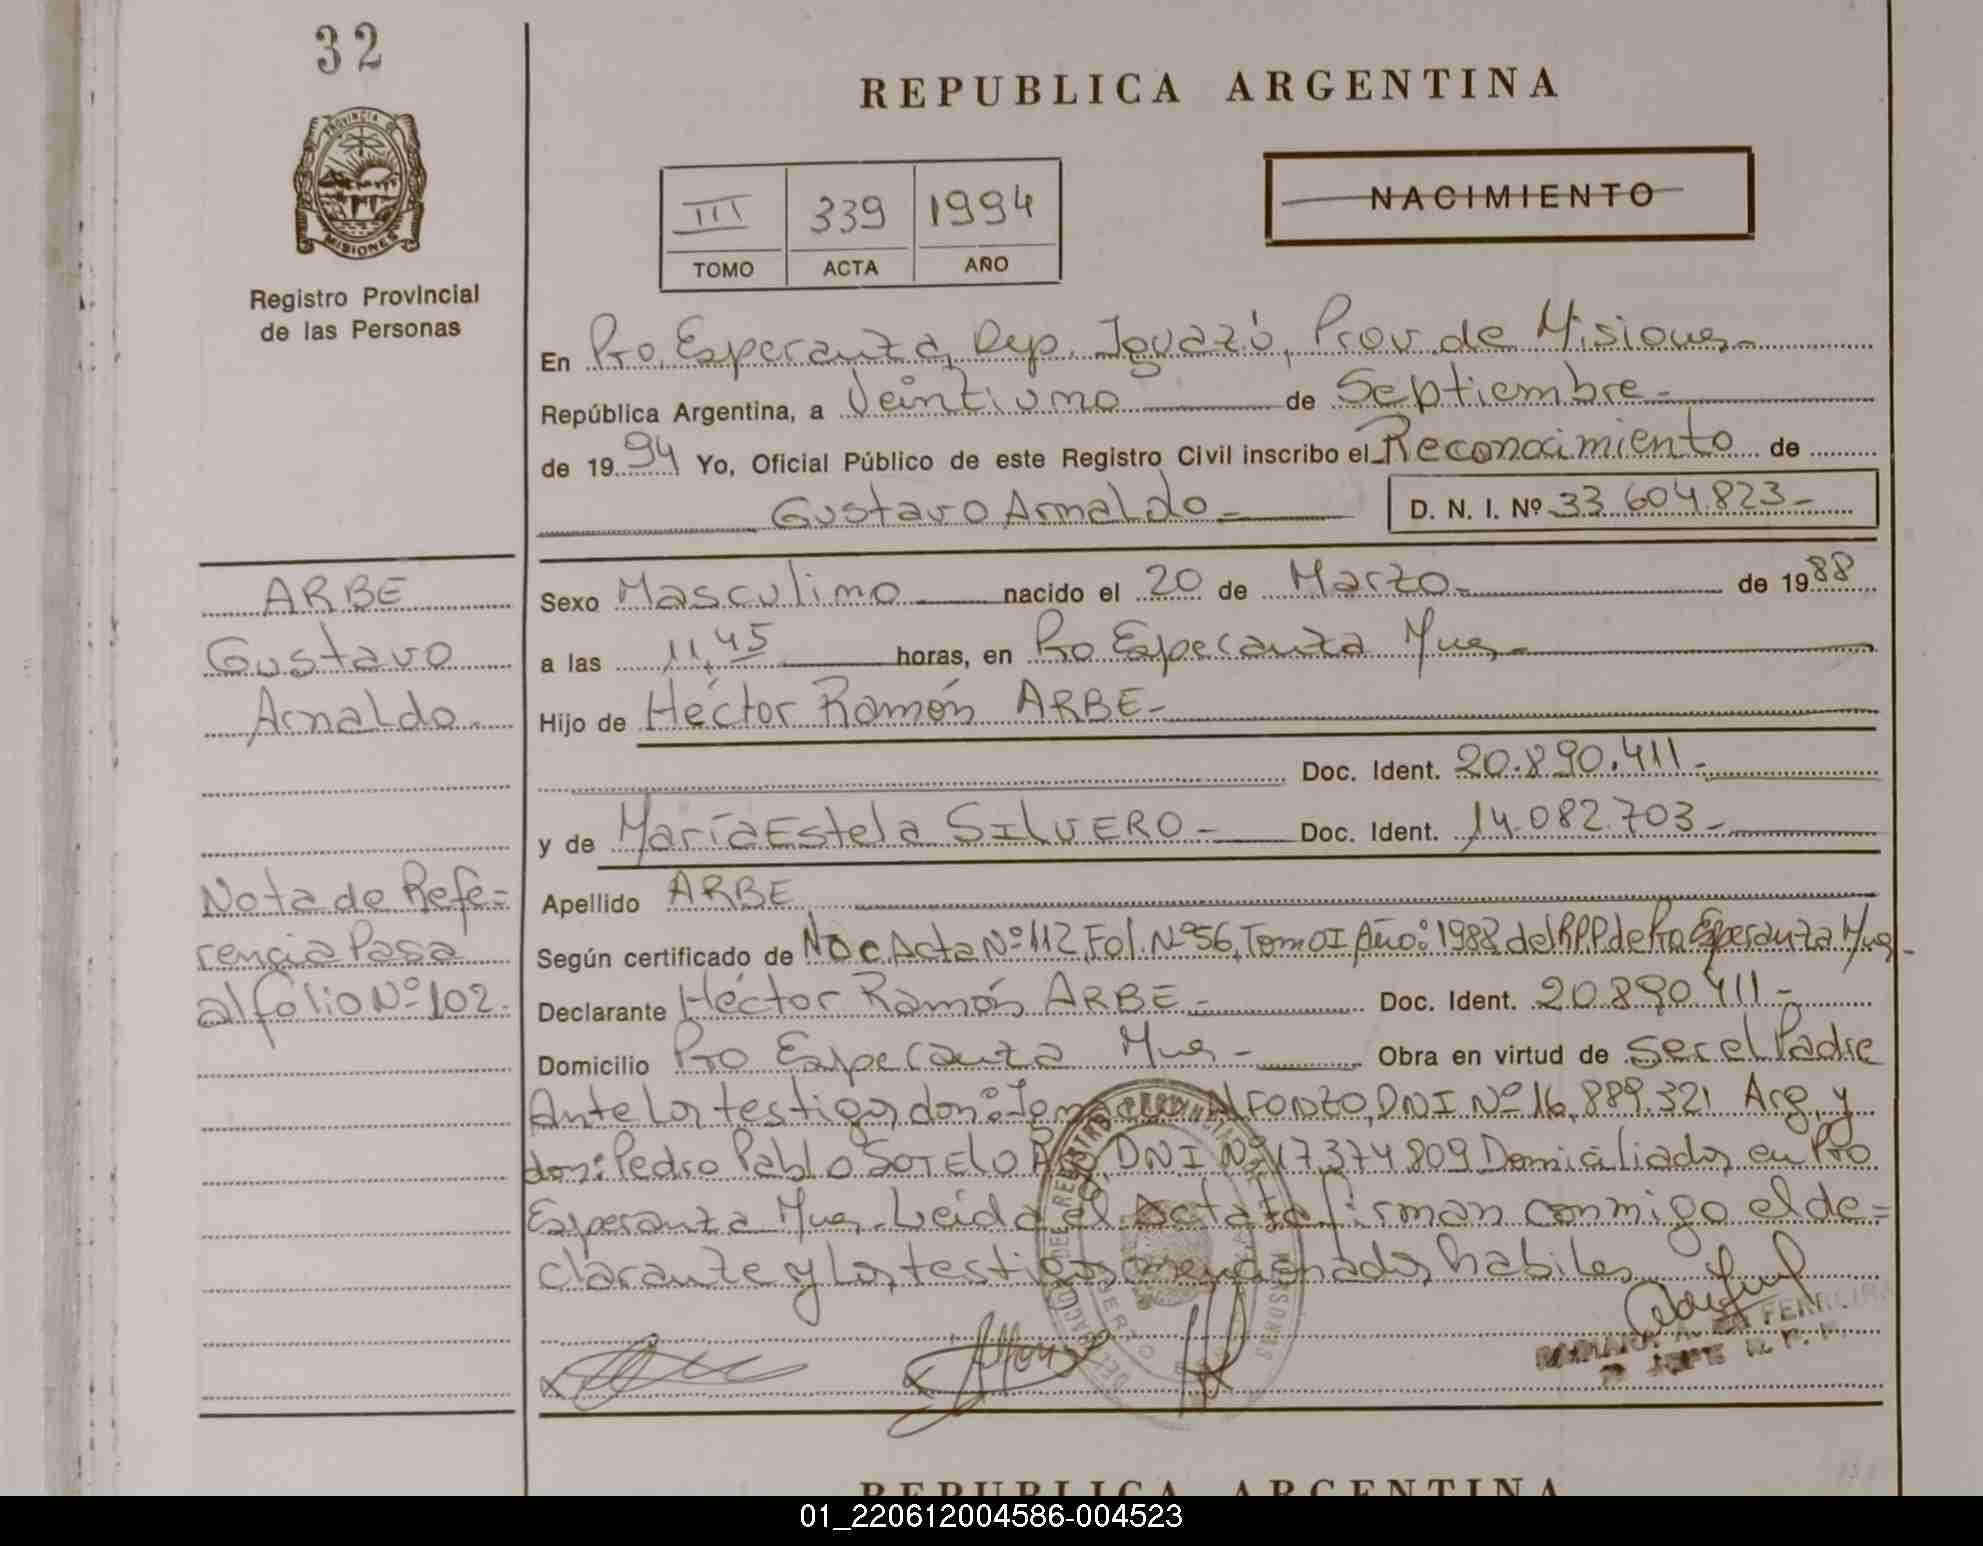 32
PROVINCIA DE
MISIONES
Registro Provincial
de las Personas
REPUBLICA ARGENTINA
NACIMIENTO
III 339 1994
TOMO ACTA AÑO
En Pto. Esperanza, Dep. Iguazú, Prov. de Misiones.-
República Argentina, a Veintiuno de Septiembre.-
de 1994 Yo, Oficial Público de este Registro Civil inscribo el Reconocimiento de
Gustavo Arnaldo.- D. N. I. Nº 33.604.823-
ARBE
Gustavo
Arnaldo.-
Sexo Masculino nacido el 20 de Marzo.- de 1988
a las 11,45 horas, en Pto Esperanza Mnes.-
Hijo de Héctor Ramón ARBE-
Doc. Ident. 20.890.411-
y de María Estela SILVERO- Doc. Ident. 14.082.703-
Nota de Refe=
rencia Pasa
al folio Nº 102.
Apellido ARBE
Según certificado de Noc Acta Nº 112, Fol. Nº 56, Tomo I Año: 1988 del R.P.P. de Pto Esperanza Mnes-
Declarante Héctor Ramón ARBE- Doc. Ident. 20.890.411-
Domicilio Pto Esperanza Mnes- Obra en virtud de Ser el Padre
Ante los testigos don: Ignacio ALFONZO, DNI Nº 16.889.321 Arg. y
don: Pedro Pablo SOTELO Arg. DNI Nº 17374809 Domiciliados en Pto
Esperanza Mnes. Leída el Acta la firman conmigo el de=
clarante y los testigos mencionados habiles
FERREIRA
JEFE R. P. P.
REPUBLICA ARGENTINA
01_220612004586-004523